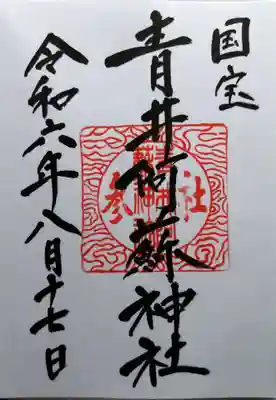 国宝
青井阿蘇神社
令和六年八月十七日
参社